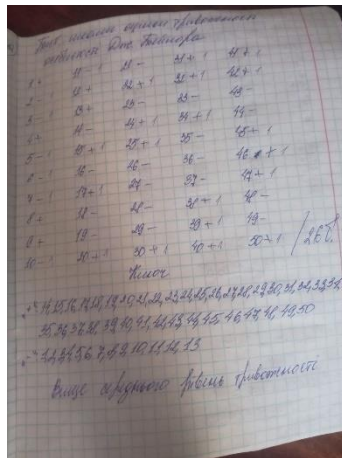 Тест шкали оцінки тривожності
1 + 11 - 1 21 - 31 + 1 41 + 1
2 - 12 + 22 + 1 32 + 1 42 + 1
3 - 13 + 23 - 33 - 43 -
4 + 14 - 24 + 1 34 + 1 44 -
5 - 15 + 1 25 + 1 35 - 45 + 1
6 - 16 - 26 - 36 - 46 + 1
7 - 17 + 1 27 - 37 - 47 + 1
8 + 18 - 28 - 38 + 1 48 -
9 + 19 - 29 - 39 + 1 49 -
10 - 1 20 + 1 30 + 1 40 + 1 50 + 1 / 26 б.
Ключ
"+" 14, 15, 16, 17, 18, 19, 20, 21, 22, 23, 24, 25, 26, 27, 28, 29, 30, 31, 32, 33, 34,
35, 36, 37, 38, 39, 40, 41, 42, 43, 44, 45, 46, 47, 48, 49, 50
"-" 1, 2, 3, 4, 5, 6, 7, 8, 9, 10, 11, 12, 13
Вище середнього рівень тривожності